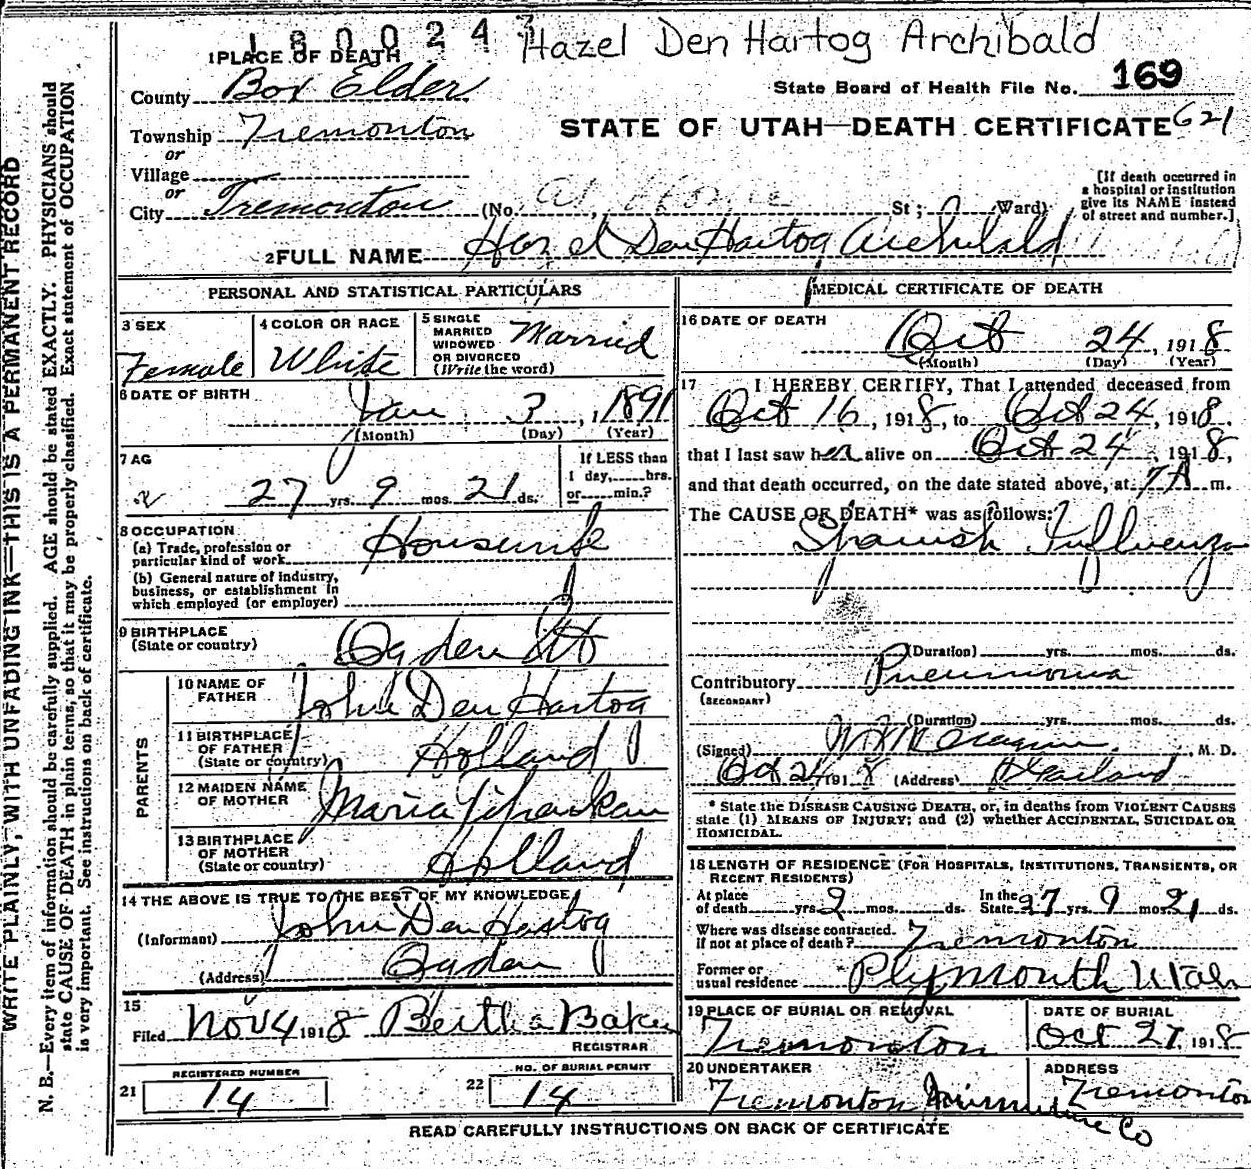 180024
Hazel Den Hartog Archibald
1 PLACE OF DEATH
State Board of Health File No. 169
County Box Elder
Township Tremonton
STATE OF UTAH—DEATH CERTIFICATE 621
or
Village
or
City Tremonton (No. at Home St; Ward)
[If death occurred in
a hospital or institution
give its NAME instead
of street and number.]
2 FULL NAME Hazel Den Hartog Archibald
PERSONAL AND STATISTICAL PARTICULARS
3 SEX
Female
4 COLOR OR RACE
White
5 SINGLE
MARRIED
WIDOWED
OR DIVORCED
(Write the word)
Married
6 DATE OF BIRTH
Jan 3, 1891
(Month) (Day) (Year)
7 AG
27 yrs. 9 mos. 21 ds.
If LESS than
1 day, hrs.
or min.?
8 OCCUPATION
(a) Trade, profession or
particular kind of work Housewife
(b) General nature of industry,
business, or establishment in
which employed (or employer)
9 BIRTHPLACE
(State or country) Ogden
PARENTS
10 NAME OF
FATHER John Den Hartog
11 BIRTHPLACE
OF FATHER
(State or country) Holland
12 MAIDEN NAME
OF MOTHER Maria
13 BIRTHPLACE
OF MOTHER
(State or country) Holland
14 THE ABOVE IS TRUE TO THE BEST OF MY KNOWLEDGE
(Informant) John Den Hartog
(Address) Ogden
15
Filed Nov 4 1918 Bertha Baker
REGISTRAR
21 REGISTERED NUMBER
14
22 NO. OF BURIAL PERMIT
14
MEDICAL CERTIFICATE OF DEATH
16 DATE OF DEATH
Oct 24, 1918
(Month) (Day) (Year)
17 I HEREBY CERTIFY, That I attended deceased from
Oct 16, 1918, to Oct 24, 1918.
that I last saw her alive on Oct 24, 1918,
and that death occurred, on the date stated above, at 7 A m.
The CAUSE OF DEATH* was as follows:
Spanish Influenza
(Duration) yrs. mos. ds.
Contributory Pneumonia
(SECONDARY)
(Duration) yrs. mos. ds.
(Signed) M. D.
Oct 24 1918 (Address)
* State the DISEASE CAUSING DEATH, or, in deaths from VIOLENT CAUSES
state (1) MEANS OF INJURY; and (2) whether ACCIDENTAL, SUICIDAL OR
HOMICIDAL.
18 LENGTH OF RESIDENCE (FOR HOSPITALS, INSTITUTIONS, TRANSIENTS, OR
RECENT RESIDENTS)
At place
of death yrs 2 mos. ds.
In the
State 27 yrs. 9 mos. 21 ds.
Where was disease contracted.
if not at place of death? Tremonton
Former or
usual residence Plymouth Utah
19 PLACE OF BURIAL OR REMOVAL
Tremonton
DATE OF BURIAL
Oct 27, 1918
20 UNDERTAKER
Tremonton Furniture Co
ADDRESS
Tremonton
READ CAREFULLY INSTRUCTIONS ON BACK OF CERTIFICATE
WRITE PLAINLY, WITH UNFADING INK—THIS IS A PERMANENT RECORD
N. B.—Every item of information should be carefully supplied. AGE should be stated EXACTLY. PHYSICIANS should
state CAUSE OF DEATH in plain terms, so that it may be properly classified. Exact statement of OCCUPATION
is very important. See instructions on back of certificate.